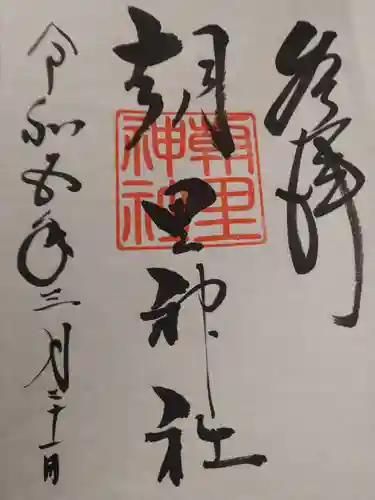 奉拝
朝里神社
朝里神社
令和五年三月二十一日